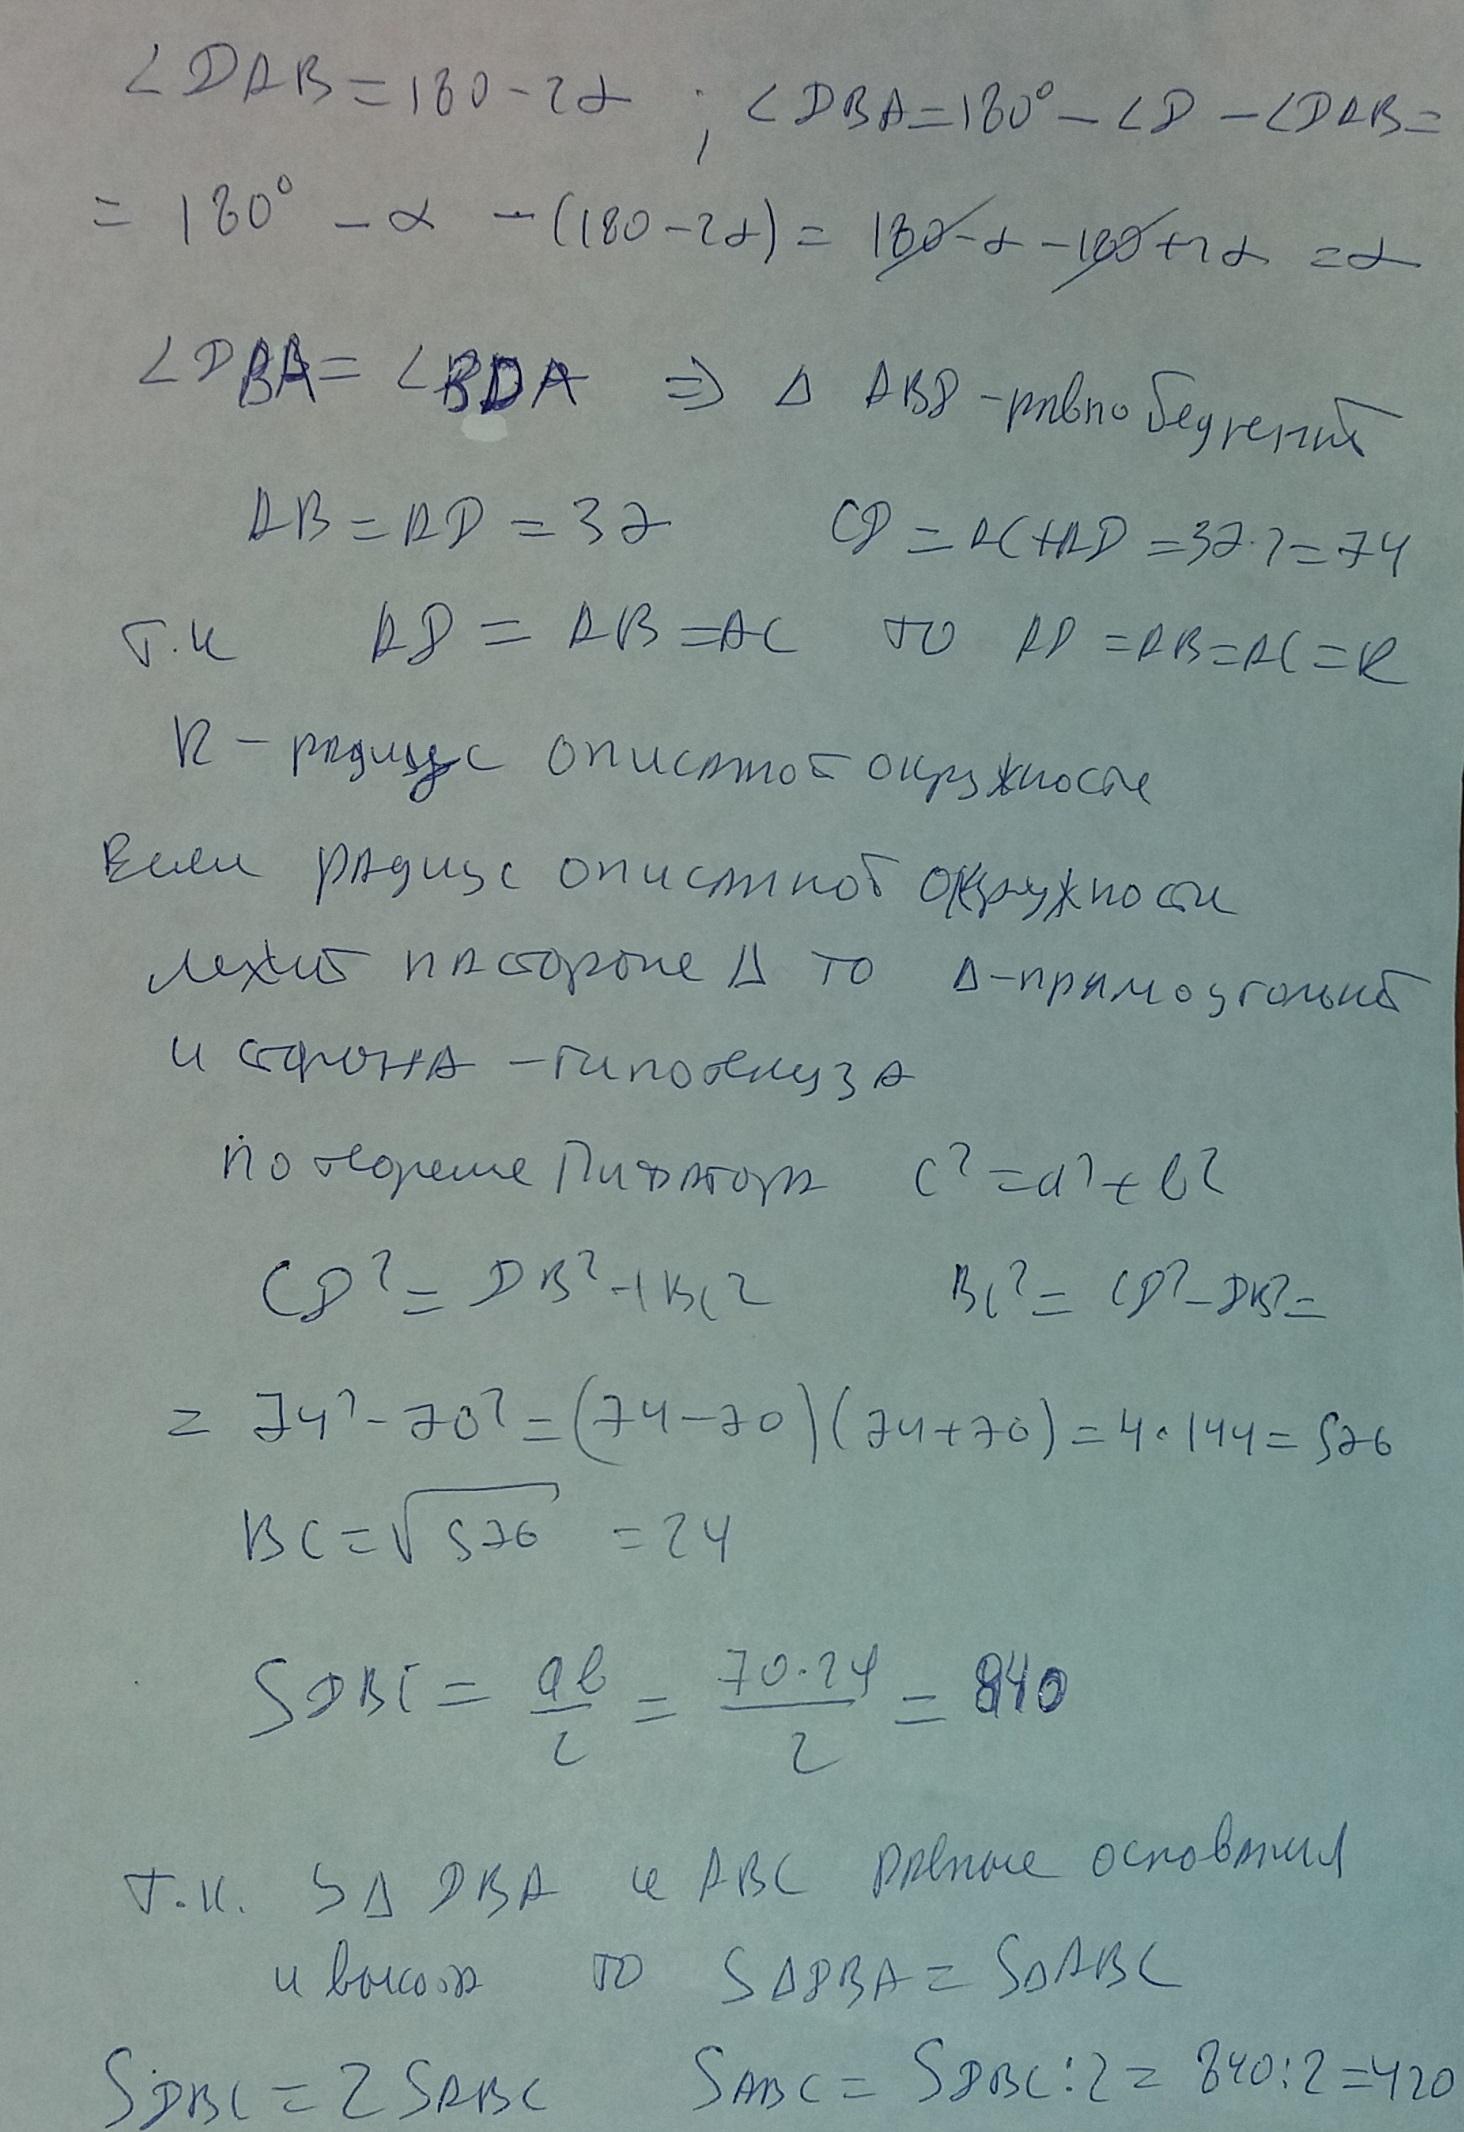 ∠DAB = 180 - 2α ; ∠DBA = 180° - ∠D - ∠DAB =
= 180° - α - (180 - 2α) = 180 - α - 180 + 2α = α
∠DBA = ∠BDA ⇒ Δ ABD - равнобедренный
AB = AD = 37 CD = AC + AD = 37·2 = 74
т.к AD = AB = AC то AD = AB = AC = R
R - радиус описанной окружности
Если радиус описанной окружности
лежит на стороне Δ то Δ - прямоугольный
и сторона - гипотенуза
По теореме Пифагора c² = a² + b²
CD² = DB² + BC² BC² = CD² - DB² =
= 74² - 70² = (74 - 70)(74 + 70) = 4·144 = 576
BC = √576 = 24
SDBC = ab/2 = 70·24/2 = 840
т.к. SΔ DBA и ABC равные основания
и высота то SΔDBA = SΔABC
SDBC = 2SABC SABC = SDBC:2 = 840:2 = 420